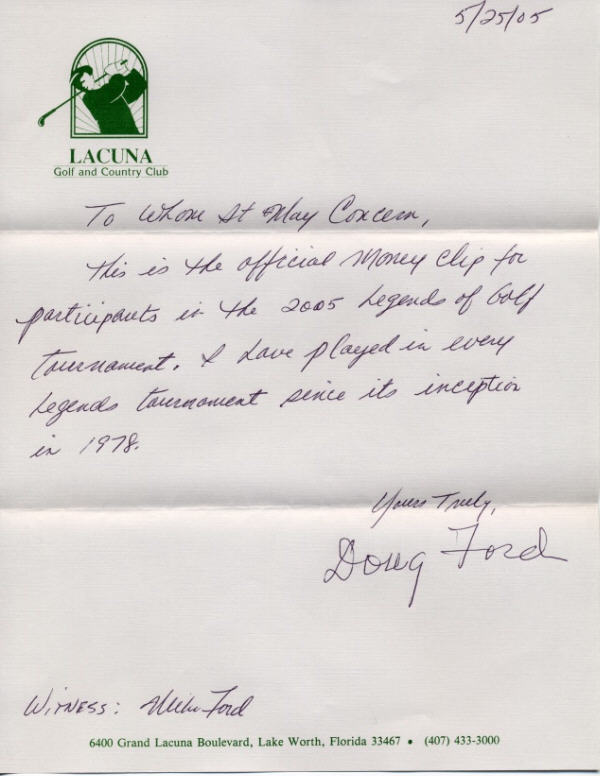 5/25/05
LACUNA
Golf and Country Club
To Whom It May Concern,
This is the official Money Clip for
participants in the 2005 Legends of Golf
Tournament. I have played in every
Legends tournament since its inception
in 1978.
Yours Truly,
Doug Ford
WITNESS: Mike Ford
6400 Grand Lacuna Boulevard, Lake Worth, Florida 33467 • (407) 433-3000